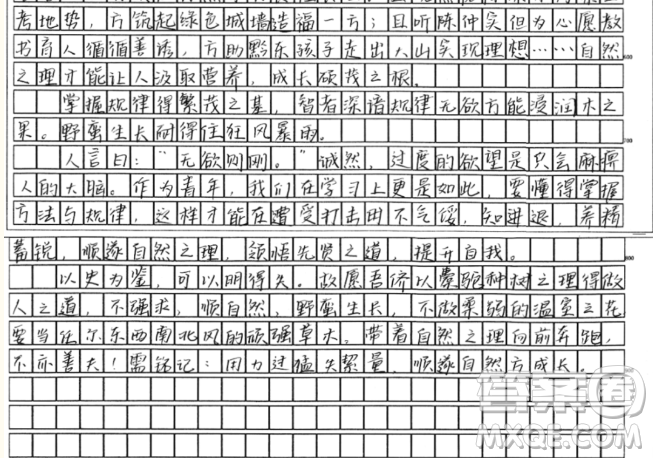 考地势，方筑起绿色城墙造福一方；且听陈仲实但为心愿教
书育人循循善诱，方助黔东孩子走出大山实现理想……自然
之理才能让人汲取营养，成长硕茂之根。
掌握规律得繁茂之基，智者深谙规律无欲方能浸润木之
果。野蛮生长耐得住狂风暴雨。
人言曰："无欲则刚。"诚然，过度的欲望是只会麻痹
人的大脑。作为青年，我们在学习上更是如此，要懂得掌握
方法与规律，这样才能在遭受打击田不气馁，知进退，养精
蓄锐，顺遂自然之理，领悟先贤之道，提升自我。
以史为鉴，可以明得失。故愿吾侪以橐驼种树之理得做
人之道，不强求，顺自然，野蛮生长，不做柔弱的温室之花
要当任尔东西南北风的顽强草木。带着自然之理向前奔跑，
不亦善夫！需铭记：用力过猛失挈量，顺遂自然方成长。
600
700
800
答案圈
MXQE.COM